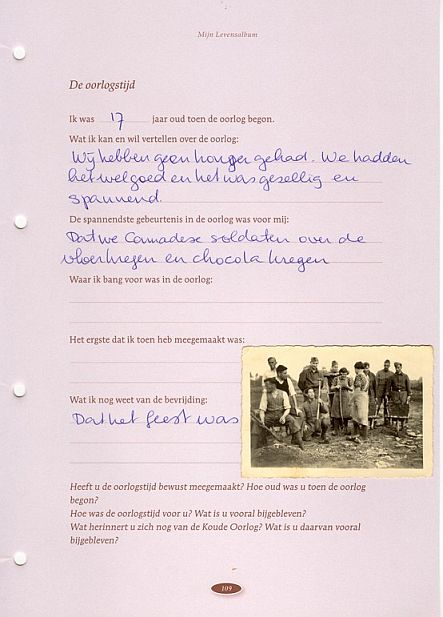 Mijn Levensalbum
De oorlogstijd
Ik was 17 jaar oud toen de oorlog begon.
Wat ik kan en wil vertellen over de oorlog:
Wij hebben geen honger gehad. We hadden
het wel goed en het was gezellig en
spannend.
De spannendste gebeurtenis in de oorlog was voor mij:
Dat we Cannadese soldaten over de
vloer kregen en chocola kregen
Waar ik bang voor was in de oorlog:
Het ergste dat ik toen heb meegemaakt was:
Wat ik nog weet van de bevrijding:
Dat het feest was
Heeft u de oorlogstijd bewust meegemaakt? Hoe oud was u toen de oorlog
begon?
Hoe was de oorlogstijd voor u? Wat is u vooral bijgebleven?
Wat herinnert u zich nog van de Koude Oorlog? Wat is u daarvan vooral
bijgebleven?
109